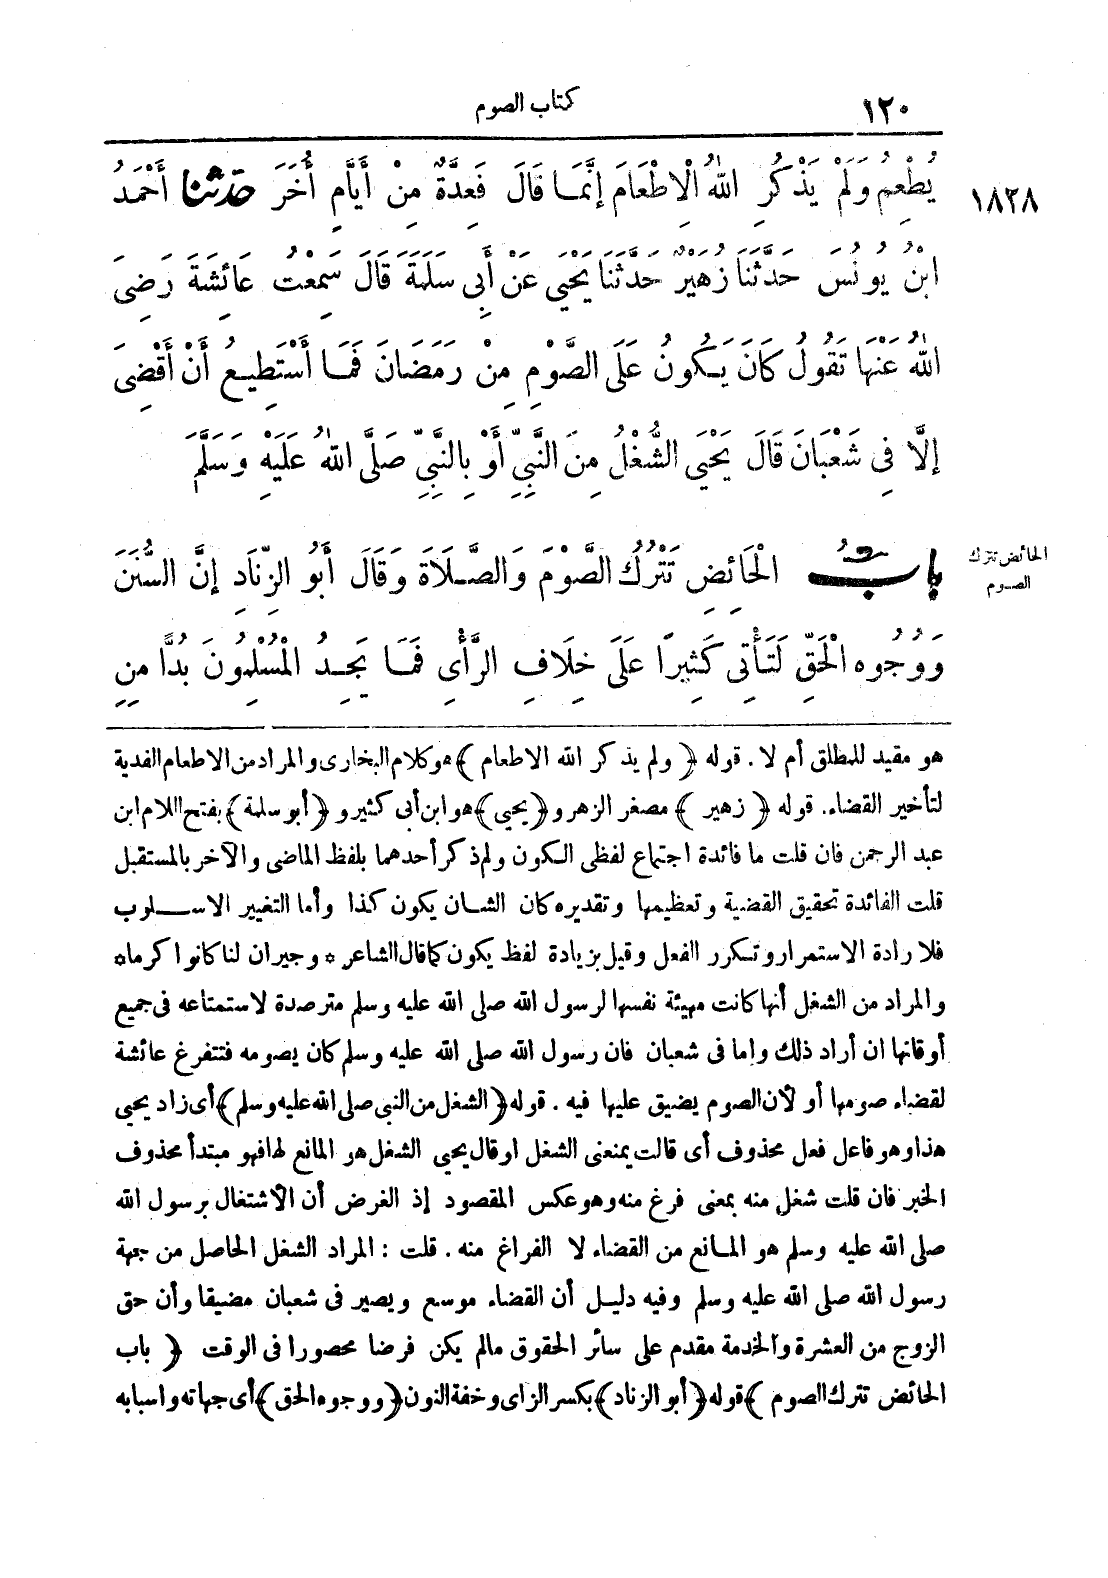 ١٢٠
كتاب الصوم
يُطْعِمُ وَلَمْ يَذْكُرِ اللهُ الْإِطْعَامَ إِنَّمَا قَالَ فَعِدَّةٌ مِنْ أَيَّامٍ أُخَرَ حَدَّثَنَا أَحْمَدُ
١٨٢٨
ابْنُ يُونُسَ حَدَّثَنَا زُهَيْرٌ حَدَّثَنَا يَحْيَى عَنْ أَبِي سَلَمَةَ قَالَ سَمِعْتُ عَائِشَةَ رَضِىَ
اللهُ عَنْهَا تَقُولُ كَانَ يَكُونُ عَلَىَّ الصَّوْمِ مِنْ رَمَضَانَ فَمَا أَسْتَطِيعُ أَنْ أَقْضِىَ
إِلَّا فِى شَعْبَانَ قَالَ يَحْيَى الشُّغْلُ مِنَ النَّبِيِّ أَوْ بِالنَّبِيِّ صَلَّى اللهُ عَلَيْهِ وَسَلَّمَ
بابُ الْحَائِضِ تَتْرُكُ الصَّوْمَ وَالصَّلَاةَ وَقَالَ أَبُو الزِّنَادِ إِنَّ السُّنَنَ
الحائض تترك
الصوم
وَوُجُوهَ الْحَقِّ لَتَأْتِى كَثِيرًا عَلَى خِلَافِ الرَّأْىِ فَمَا يَجِدُ الْمُسْلِمُونَ بُدًّا مِنِ
هو مقيد للمطلق أم لا . قوله ﴿ ولم يذكر الله الاطعام ﴾ هو كلام البخارى والمراد من الاطعام الفدية
لتأخير القضاء. قوله ﴿ زهير ﴾ مصغر الزهر و﴿يحيى﴾ هو ابن أبى كثير و ﴿أبو سلمة﴾ بفتح اللام ابن
عبد الرحمن فان قلت ما فائدة اجتماع لفظى الكون ولم ذكر أحدهما بلفظ الماضى والآخر بالمستقبل
قلت الفائدة تحقيق القضية وتعظيمها وتقديره كان الشان يكون كذا وأما التغيير الاسلوب
فلارادة الاستمرار وتكرر الفعل وقيل بزيادة لفظ يكون كما قال الشاعر * وجيران لنا كانوا كرما*
والمراد من الشغل أنها كانت مهيئة نفسها لرسول الله صلى الله عليه وسلم مترصدة لاستمتاعه فى جميع
أوقاتها ان أراد ذلك وإما فى شعبان فان رسول الله صلى الله عليه وسلم كان يصومه فتتفرغ عائشة
لقضاء صومها أو لأن الصوم يضيق عليها فيه . قوله ﴿الشغل من النبى صلى الله عليه وسلم﴾ أى زاد يحيى
هذا وهو فاعل فعل محذوف أى قالت يمنعنى الشغل او قال يحيى الشغل هو المانع لها فهو مبتدأ محذوف
الخبر فان قلت شغل منه بمعنى فرغ منه وهو عكس المقصود إذ الغرض أن الاشتغال برسول الله
صلى الله عليه وسلم هو المانع من القضاء لا الفراغ منه . قلت : المراد الشغل الحاصل من جهة
رسول الله صلى الله عليه وسلم وفيه دليل أن القضاء موسع ويصير فى شعبان مضيقا وأن حق
الزوج من العشرة والخدمة مقدم على سائر الحقوق مالم يكن فرضا محصورا فى الوقت ﴿ باب
الحائض تترك الصوم ﴾ قوله ﴿أبو الزناد﴾ بكسر الزاى وخفة النون ﴿ووجوه الحق﴾ أى جهاته واسبابه